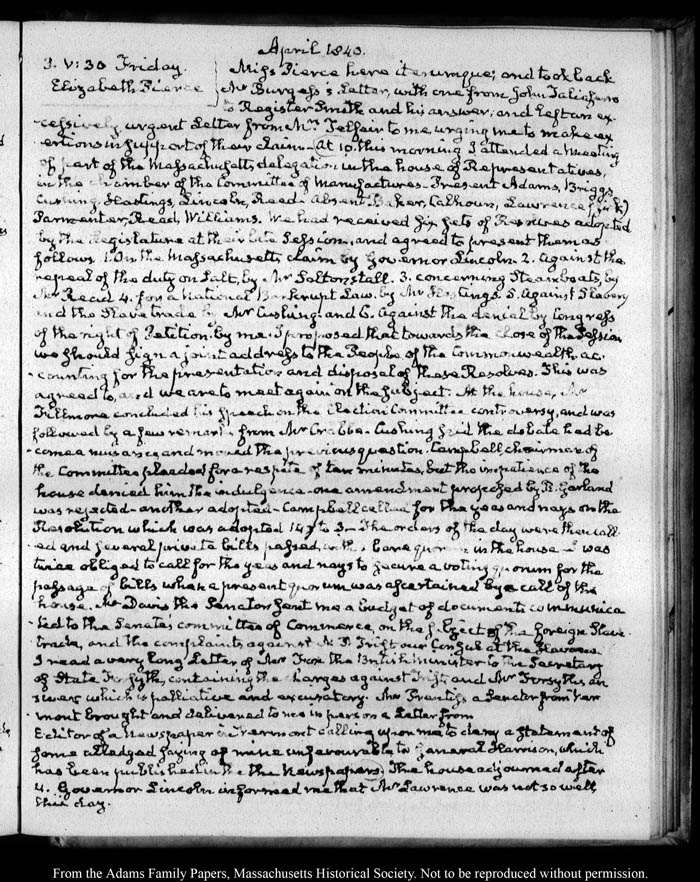 April 1840.
3. V:30 Friday.
Elizabeth Pierce
Miss Pierce here iterumque; and took back
Mr Burgess's Letter, with one from John Taliaferro
to Register Smith and his answer, and left an ex-
-cessively urgent Letter from Mrs Telfair to me urging me to make ex
ertions in support of their claim. At 10. this morning I attended a Meeting
of part of the Massachusetts delegation in the house of Representatives,
in the chamber of the Committee of Manufactures. Present Adams, Briggs,
Cushing, Hastings, Lincoln, Reed. Absent Baker, Calhoun, Lawrence (sick)
Parmenter, Read, Williams. We had received six sets of Resolves adopted
by the Legislature at their late Session, and agreed to present them as
follows 1. On the Massachusetts claim by Governor Lincoln. 2. Against the
repeal of the duty on salt, by Mr Saltonstall. 3. concerning Steamboats, by
Mr Reed 4. for a National Bankrupt Law. by Mr Hastings. 5. Against Slavery
and the Slave trade by Mr Cushing, and 6. Against the denial by Congress
of the right of Petition. by me. I proposed that towards the close of the Session
we should sign a joint address to the People of the Commonwealth, ac-
-counting for the presentation and disposal of these Resolves. This was
agreed to, and we are to meet again on the subject. At the house, Mr
Fillmore concluded his speech on the Election Committee controversy, and was
followed by a few remarks from Mr Crabbe. Cushing said the debate had be-
come a nuisance, and moved the previous question. Campbell chairman of
the Committee pleaded for a respite of ten minutes, but the impatience of the
house denied him the indulgence. one amendment proposed by R. Garland
was rejected. another adopted. Campbell called for the yeas and nays on the
Resolution which was adopted 147 to 3. The orders of the day were then call
-ed and several private bills passed with a bare quorum in the house I was
twice obliged to call for the yeas and nays to secure a voting quorum for the
passage of bills when a present quorum was ascertained by a call of the
house. Mr Davis the Senator sent me a budget of documents communica
-ted to the Senate's committee of Commerce, on the subject of the foreign Slave-
-trade, and the complaints against N. P. Trist our Consul at the Havanna
I read a very long Letter of Mr Fox the British minister to the Secretary
of State Forsyth, containing the charges against Trist and Mr Forsyth's an
swer which is palliative and excusatory. Mr Prentiss a Senator from Ver
-mont brought and delivered to me in person a Letter from
Editor of a Newspaper in Vermont calling upon me to deny a statement of
some alledged saying of mine unfavourable to General Harrison, which
has been published in the the Newspapers. The house adjourned after
4. Governor Lincoln informed me that Mr Lawrence was not so well
this day.
From the Adams Family Papers, Massachusetts Historical Society. Not to be reproduced without permission.